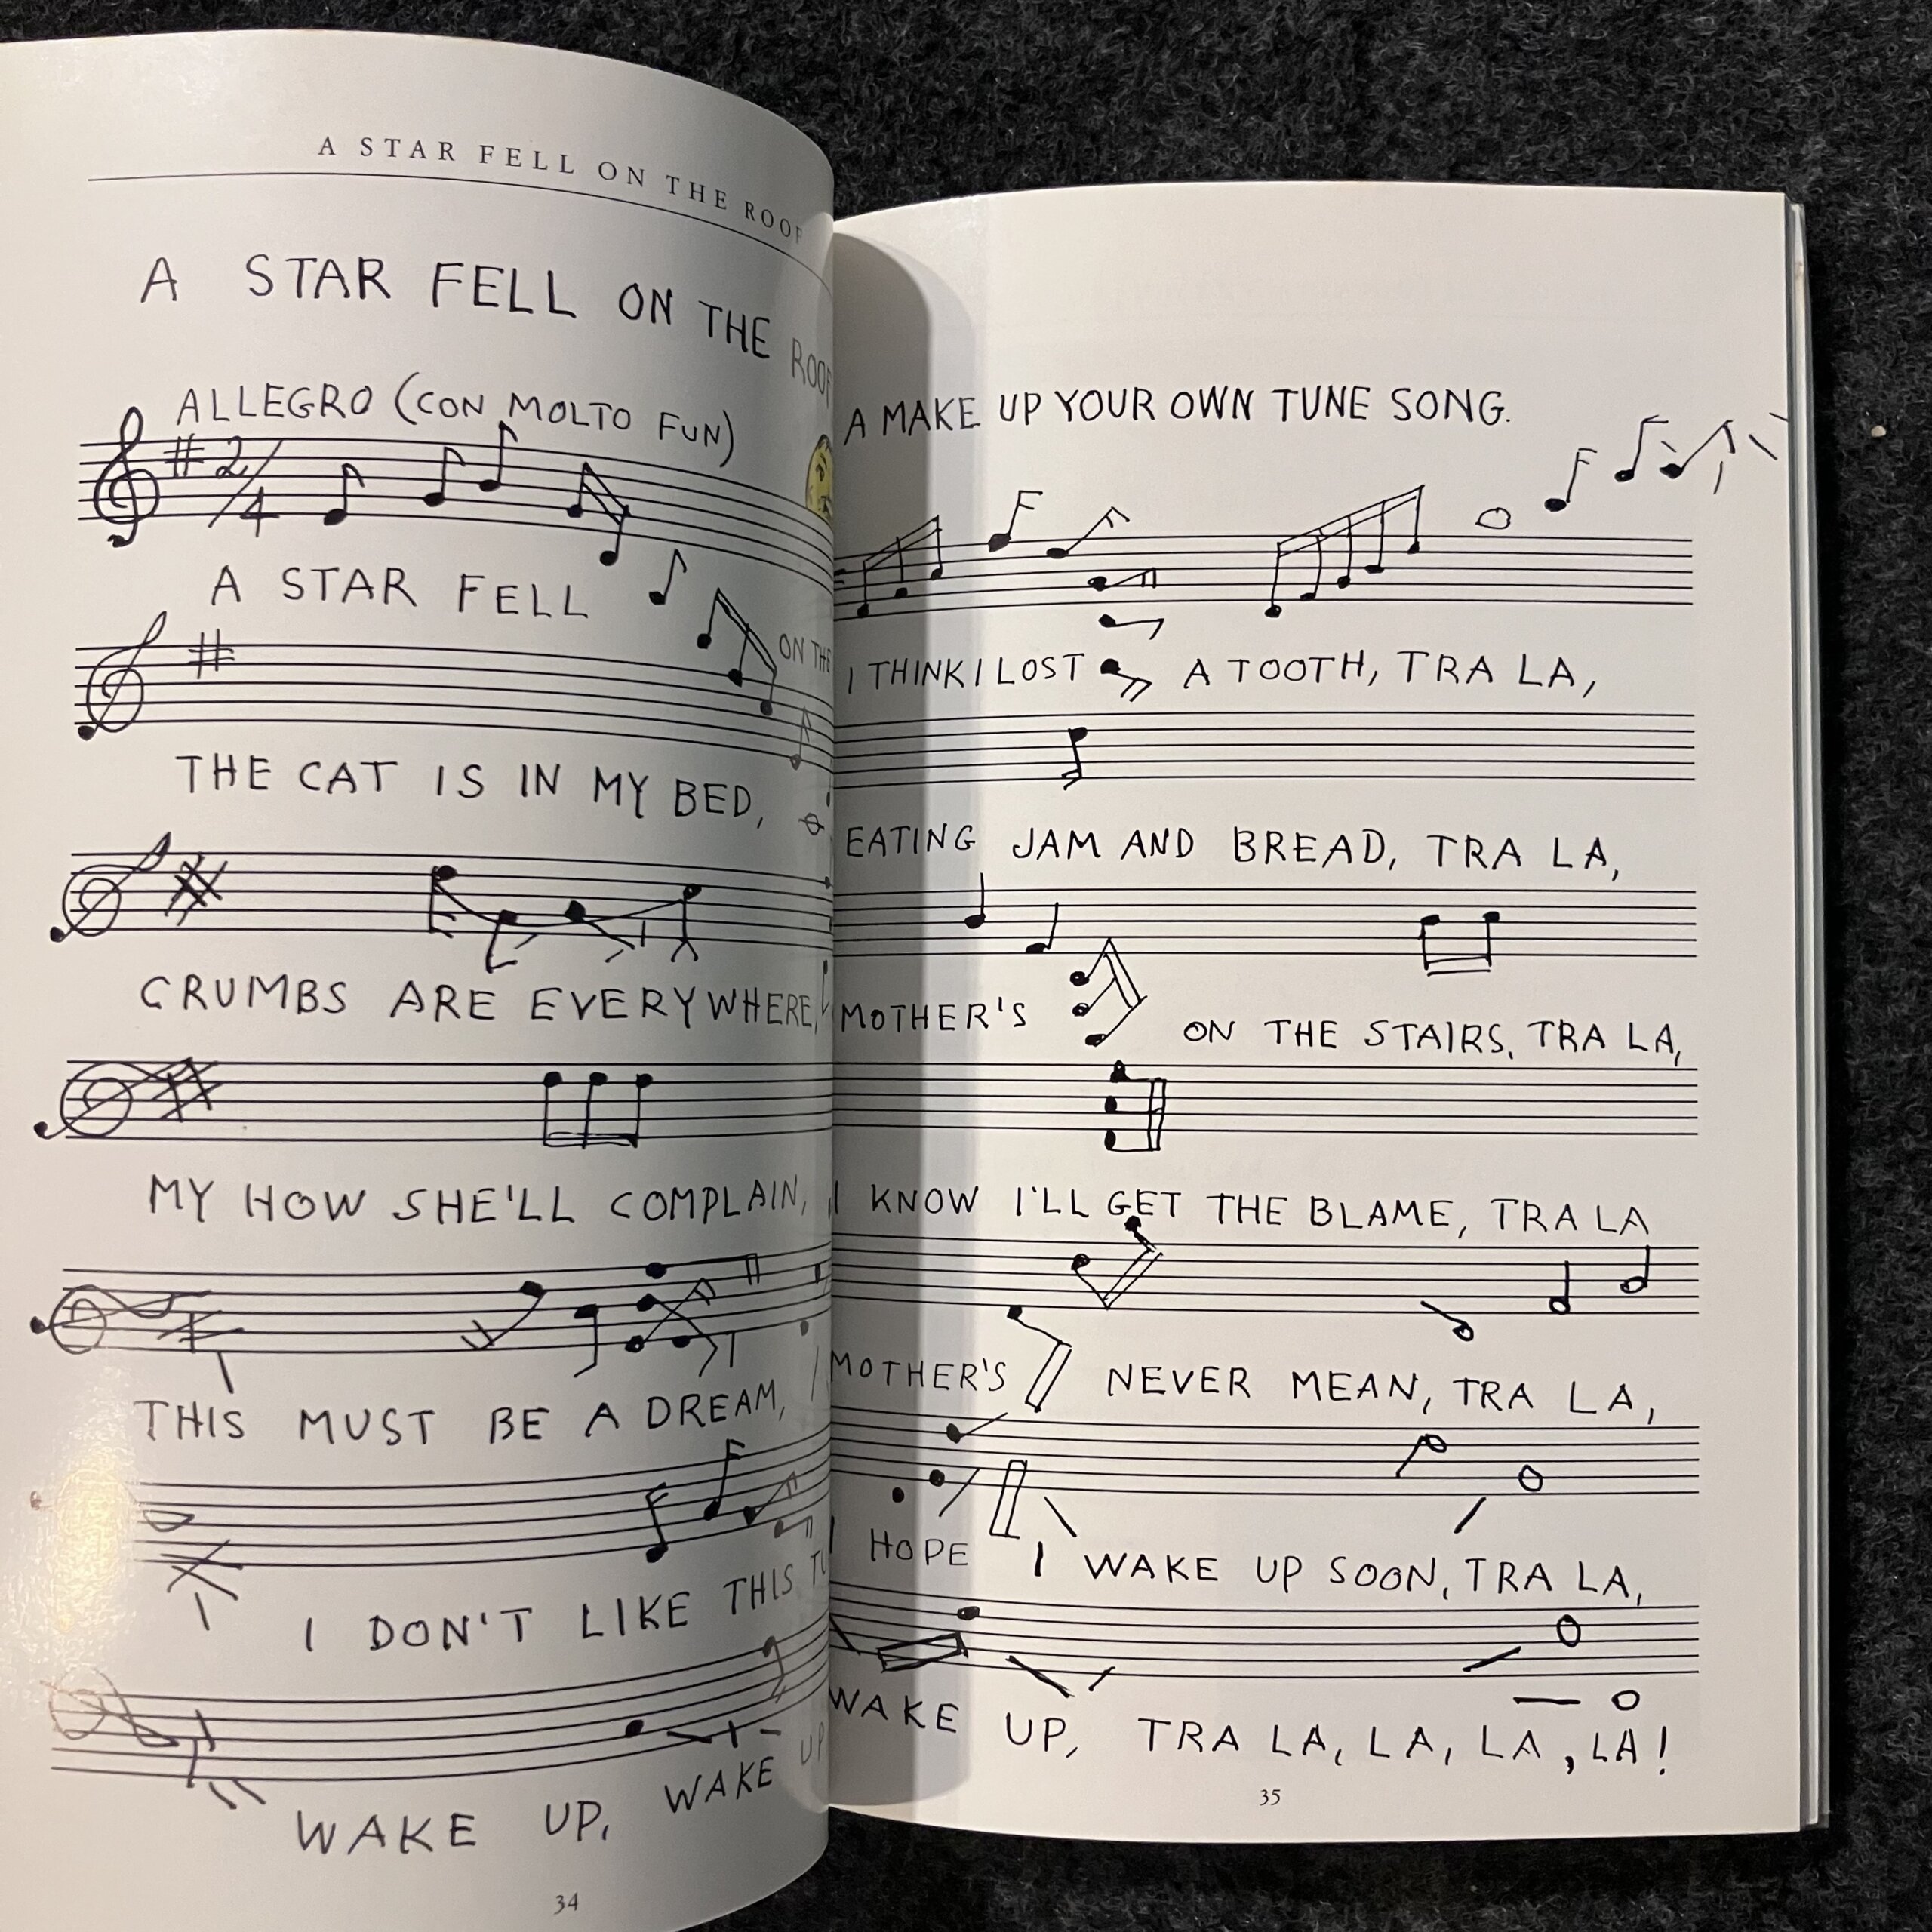 A STAR FELL ON THE ROOF
A STAR FELL ON THE ROOF
ALLEGRO (CON MOLTO FUN) A MAKE UP YOUR OWN TUNE SONG.
2/4
A STAR FELL ON THE I THINK I LOST A TOOTH, TRA LA,
THE CAT IS IN MY BED, EATING JAM AND BREAD, TRA LA,
CRUMBS ARE EVERYWHERE, MOTHER'S ON THE STAIRS, TRA LA,
MY HOW SHE'LL COMPLAIN, I KNOW I'LL GET THE BLAME, TRA LA
THIS MUST BE A DREAM, MOTHER'S NEVER MEAN, TRA LA,
I DON'T LIKE THIS I HOPE I WAKE UP SOON, TRA LA,
WAKE UP, WAKE UP WAKE UP, TRA LA, LA, LA, LA!
34
35